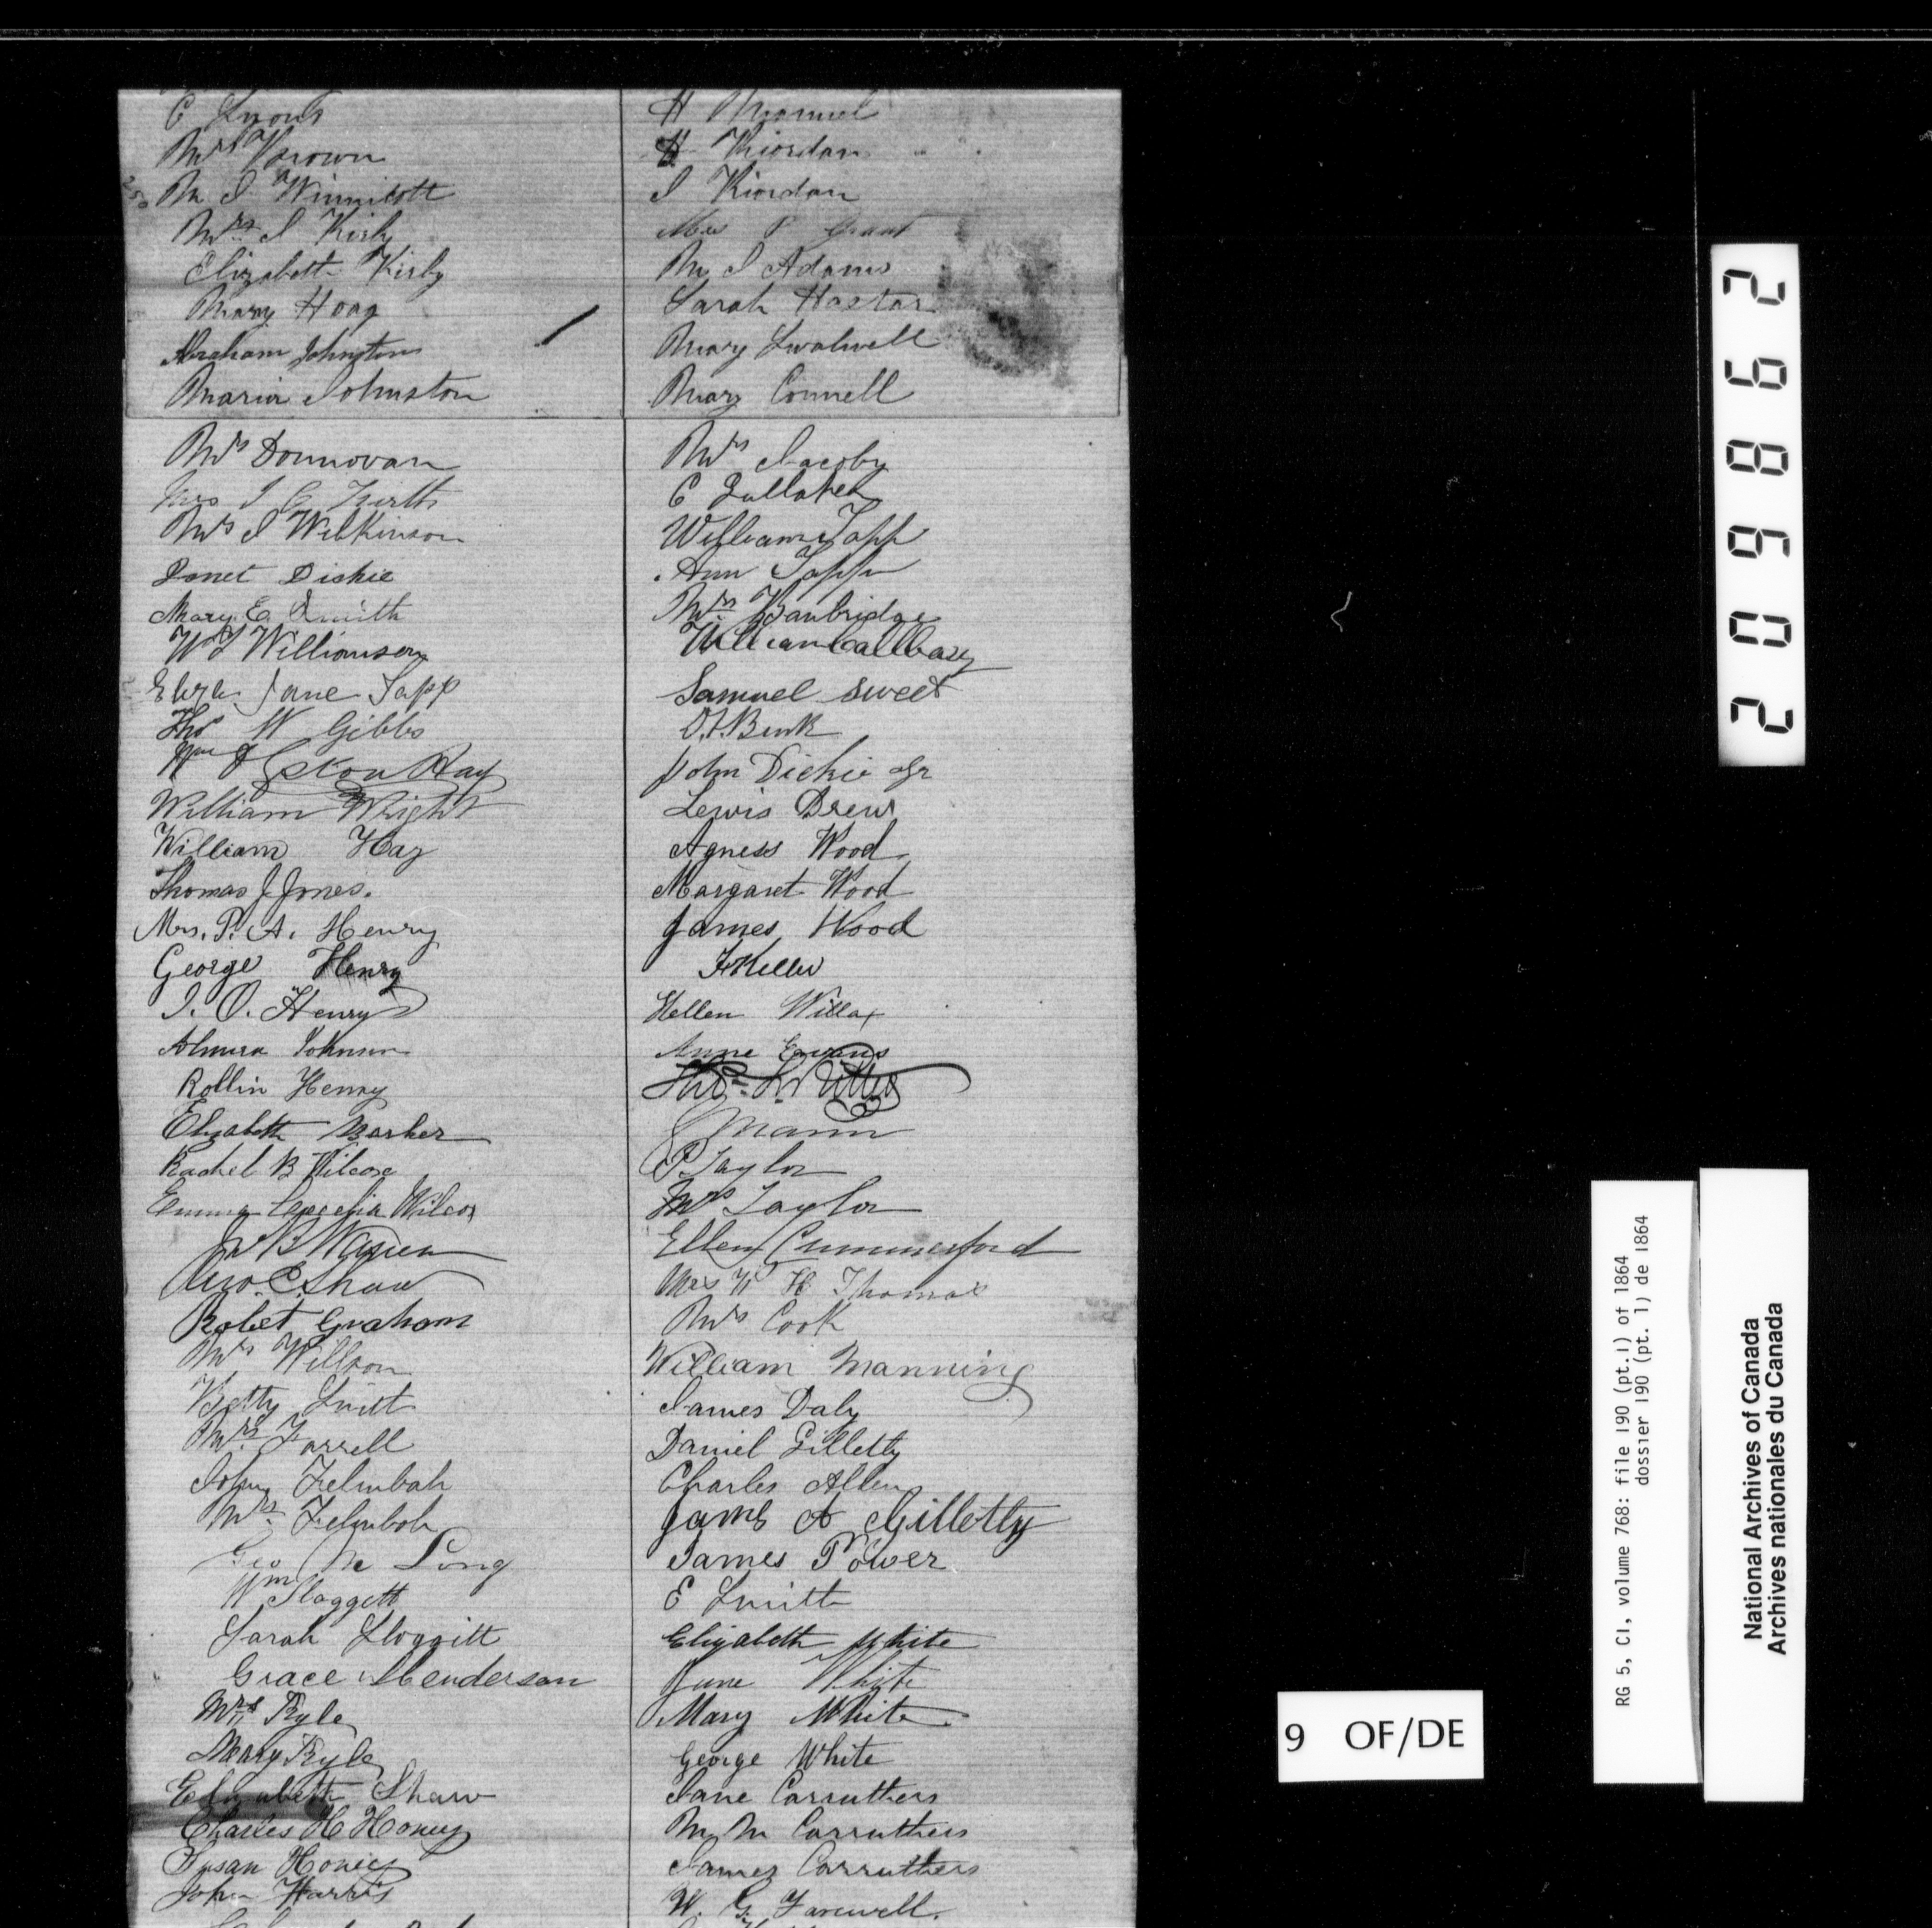 C Lyons
Mrs Brown
M J Winnicott
Mrs J Kirby
Elizabeth Kirby
Mary Hoag
Abraham Johnston
Maria Johnston
Mrs Donnovan
Mrs J C Firth
Mrs J Wilkinson
Janet Dickie
Mary E Smith
W J Williamson
Eliza Jane Tapp
Thos W Gibbs
Wm Hay
William Wright
William Hay
Thomas J Jones.
Mrs. P. A. Henry
George Henry
J. O. Henry
Almira Johnson
Rollin Henry
Elizabeth Barker
Rachel B Wilcox
Emma Wilcox
W B Warren
Geo. C. Shaw
Robet Graham
Mrs Willson
Betty Smith
Mrs Farrell
John Felmbah
Mrs Felmboh
Geo Mc Long
Wm Sloggett
Sarah Sloggitt
Grace Henderson
Mrs Ryle
Mary Ryle
Elizabeth Shaw
Charles H Honey
Susan Honey
John Harris
H
H Riordan
J Riordan
Mrs P Grant
M J Adams
Sarah Hastar
Mary Swalwell
Mary Connell
Mrs Jacoby
C Gullaher
William Tapp
Ann Tapp
Mrs Banbridge
William Callbary
Samuel Sweet
D. F. Burk
John Dickie Jr
Lewis Drew
Agness Wood
Margaret Wood
James Wood
F Keller
Hellen Willax
Anne Evans
Thos.
Mann
P. Taylor
Mrs Taylor
Ellen Cummerford
Mrs W H Thomas
Mrs Cook
William Manning
James Daly
Daniel Gilletty
Charles Allen
James A Gilletty
James Power
E Smith
Elizabeth White
Jane White
Mary White
George White
Jane Carruthers
M M Carruthers
James Carruthers
W. G. Farewell.
209862
9 OF/DE
RG 5, C1, volume 768: file 190 (pt.1) of 1864
dossier 190 (pt. 1) de 1864
National Archives of Canada
Archives nationales du Canada